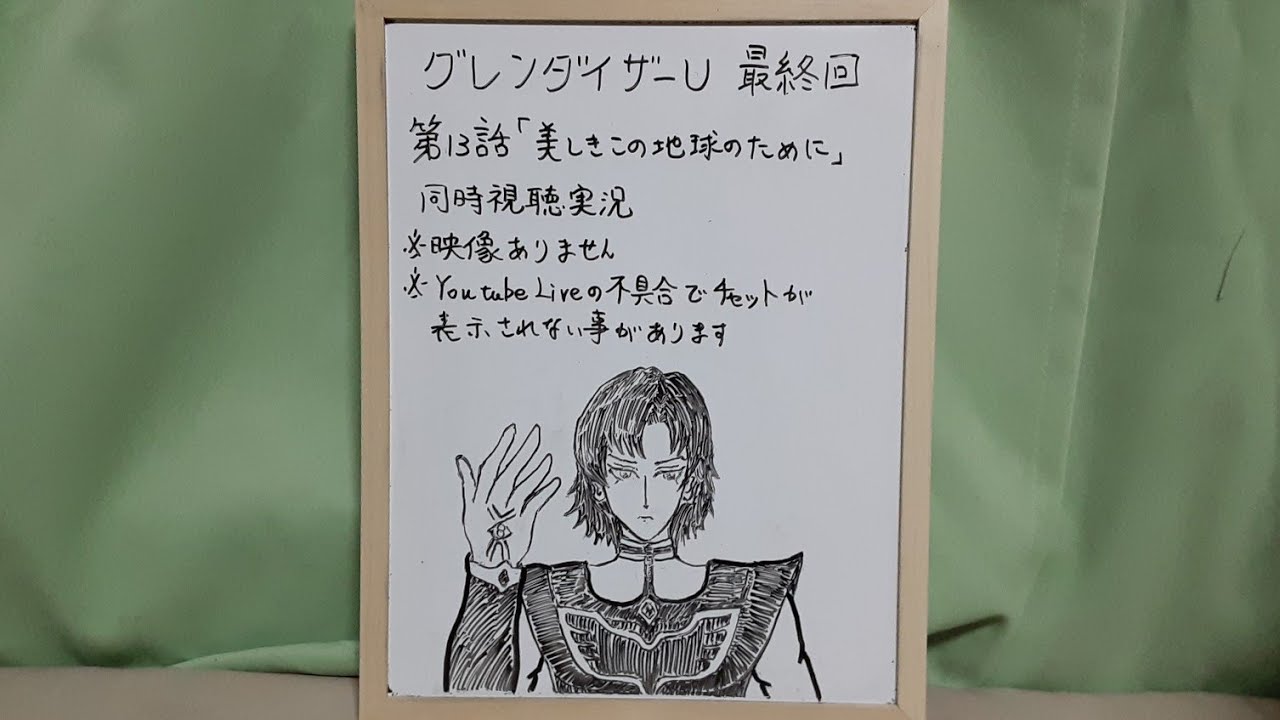 グレンダイザーU 最終回
第13話「美しきこの地球のために」
同時視聴実況
※映像ありません
※Youtube Liveの不具合でチャットが
表示されない事があります